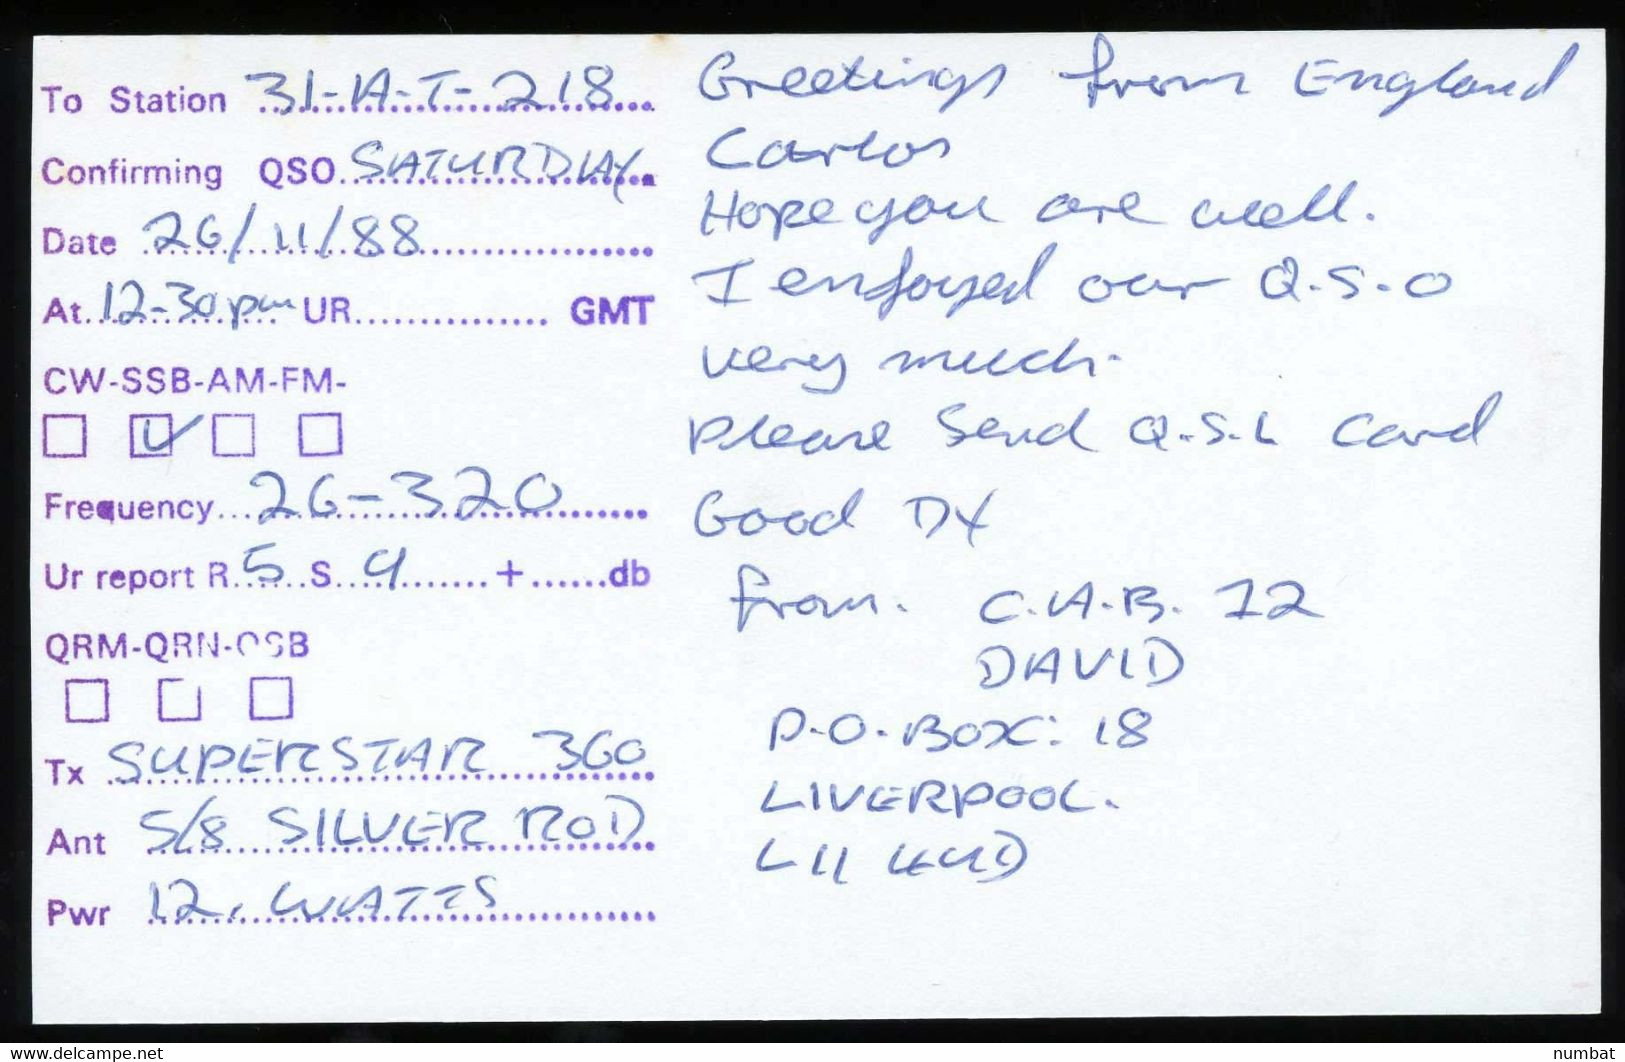 To Station 31-A-T-218
Confirming QSO SATURDAY
Date 26/11/88
At 12-30pm UR GMT
CW-SSB-AM-FM-
Frequency 26-320
Ur report R 5 S 9 + db
QRM-QRN-QSB
Tx SUPERSTAR 360
Ant 5/8 SILVER ROD
Pwr 12. WATTS
Greetings from England
Carlos
Hope you are well.
I enjoyed our Q.S.O
very much.
Please Send Q.S.L Card
Good DX
from. C.A.B. 12
DAVID
P.O. BOX: 18
LIVERPOOL.
L11
www.delcampe.net
numbat